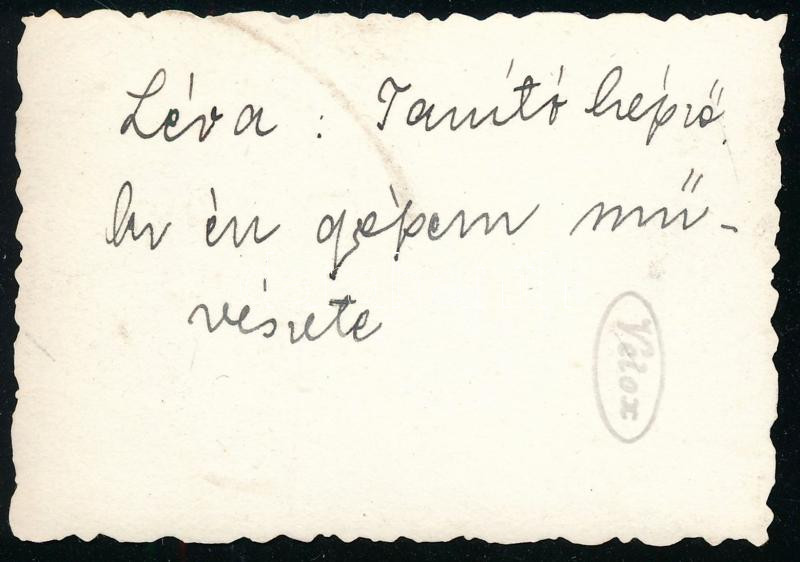 Léva : Tanító képző.
Az én gépem mű-
vészete
Velox